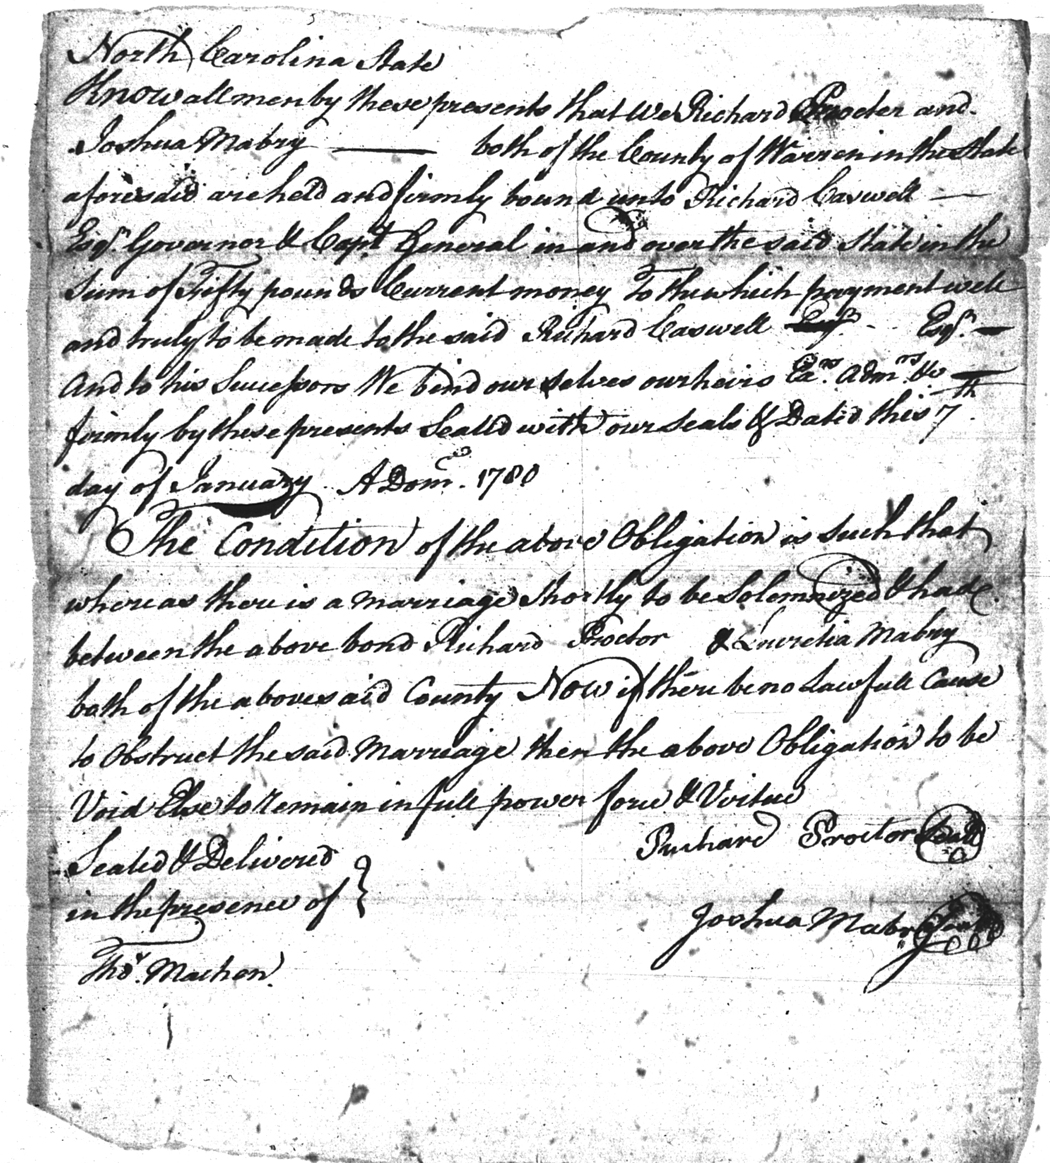 North Carolina State
Know all men by these presents that We Richard Procter and
Joshua Mabry —— both of the County of Warren in the State
aforesaid are held and firmly bound unto Richard Caswell —
Esqr. Governor & Capt. General in and over the said State in the
Sum of Fifty pounds Current money To the which payment well
and truly to be made to the said Richard Caswell Esqr. —
And to his Successors We bind our selves our heirs Exrs. Admrs. &c —
firmly by these presents Sealed with our seals & Dated this 7th
day of January A Dom. 1780
The Condition of the above Obligation is such that
whereas there is a marriage Shortly to be Solemnized & had
between the above bond Richard Proctor & Lucretia Mabry
both of the abovesaid County Now if there be no Lawfull Cause
to Obstruct the said Marriage then the above Obligation to be
Void Else to remain in full power force & Virtue
Sealed & Delivered
in the presence of }
Richard Proctor Seal
Joshua Mabry Seal
Thos. Machen